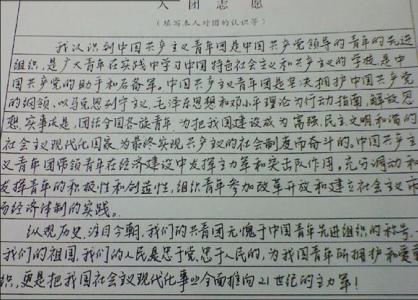 入团志愿
（填写本人对团的认识等）
我认识到中国共产主义青年团是中国共产党领导的青年的先进
组织，是广大青年在实践中学习中国特色社会主义和共产主义的学校，是中
国共产党的助手和后备军。中国共产主义青年团是坚决拥护中国共产党
的纲领，以马克思列宁主义、毛泽东思想和邓小平理论为行动指南，解放思
想，实事求是，团结全国各族青年，为把我国建设成为富强、民主文明和谐的
社会主义现代化国家，为最终实现共产主义的社会制度而奋斗的。中国共产主
义青年团带领青年在经济建设中发挥主力军和突击队作用。充分调动和
发挥青年的积极性和创造性，组织青年参加改革开放和建立社会主义市
场经济体制的实践。
纵观历史，注目今朝，我们的共青团无愧于中国青年先进组织的称号。
我们的祖国，我们的人民是忠于党，忠于人民的，为我国青年所拥护和爱戴
织，更是把我国社会主义现代化事业全面推向21世纪的主力军！